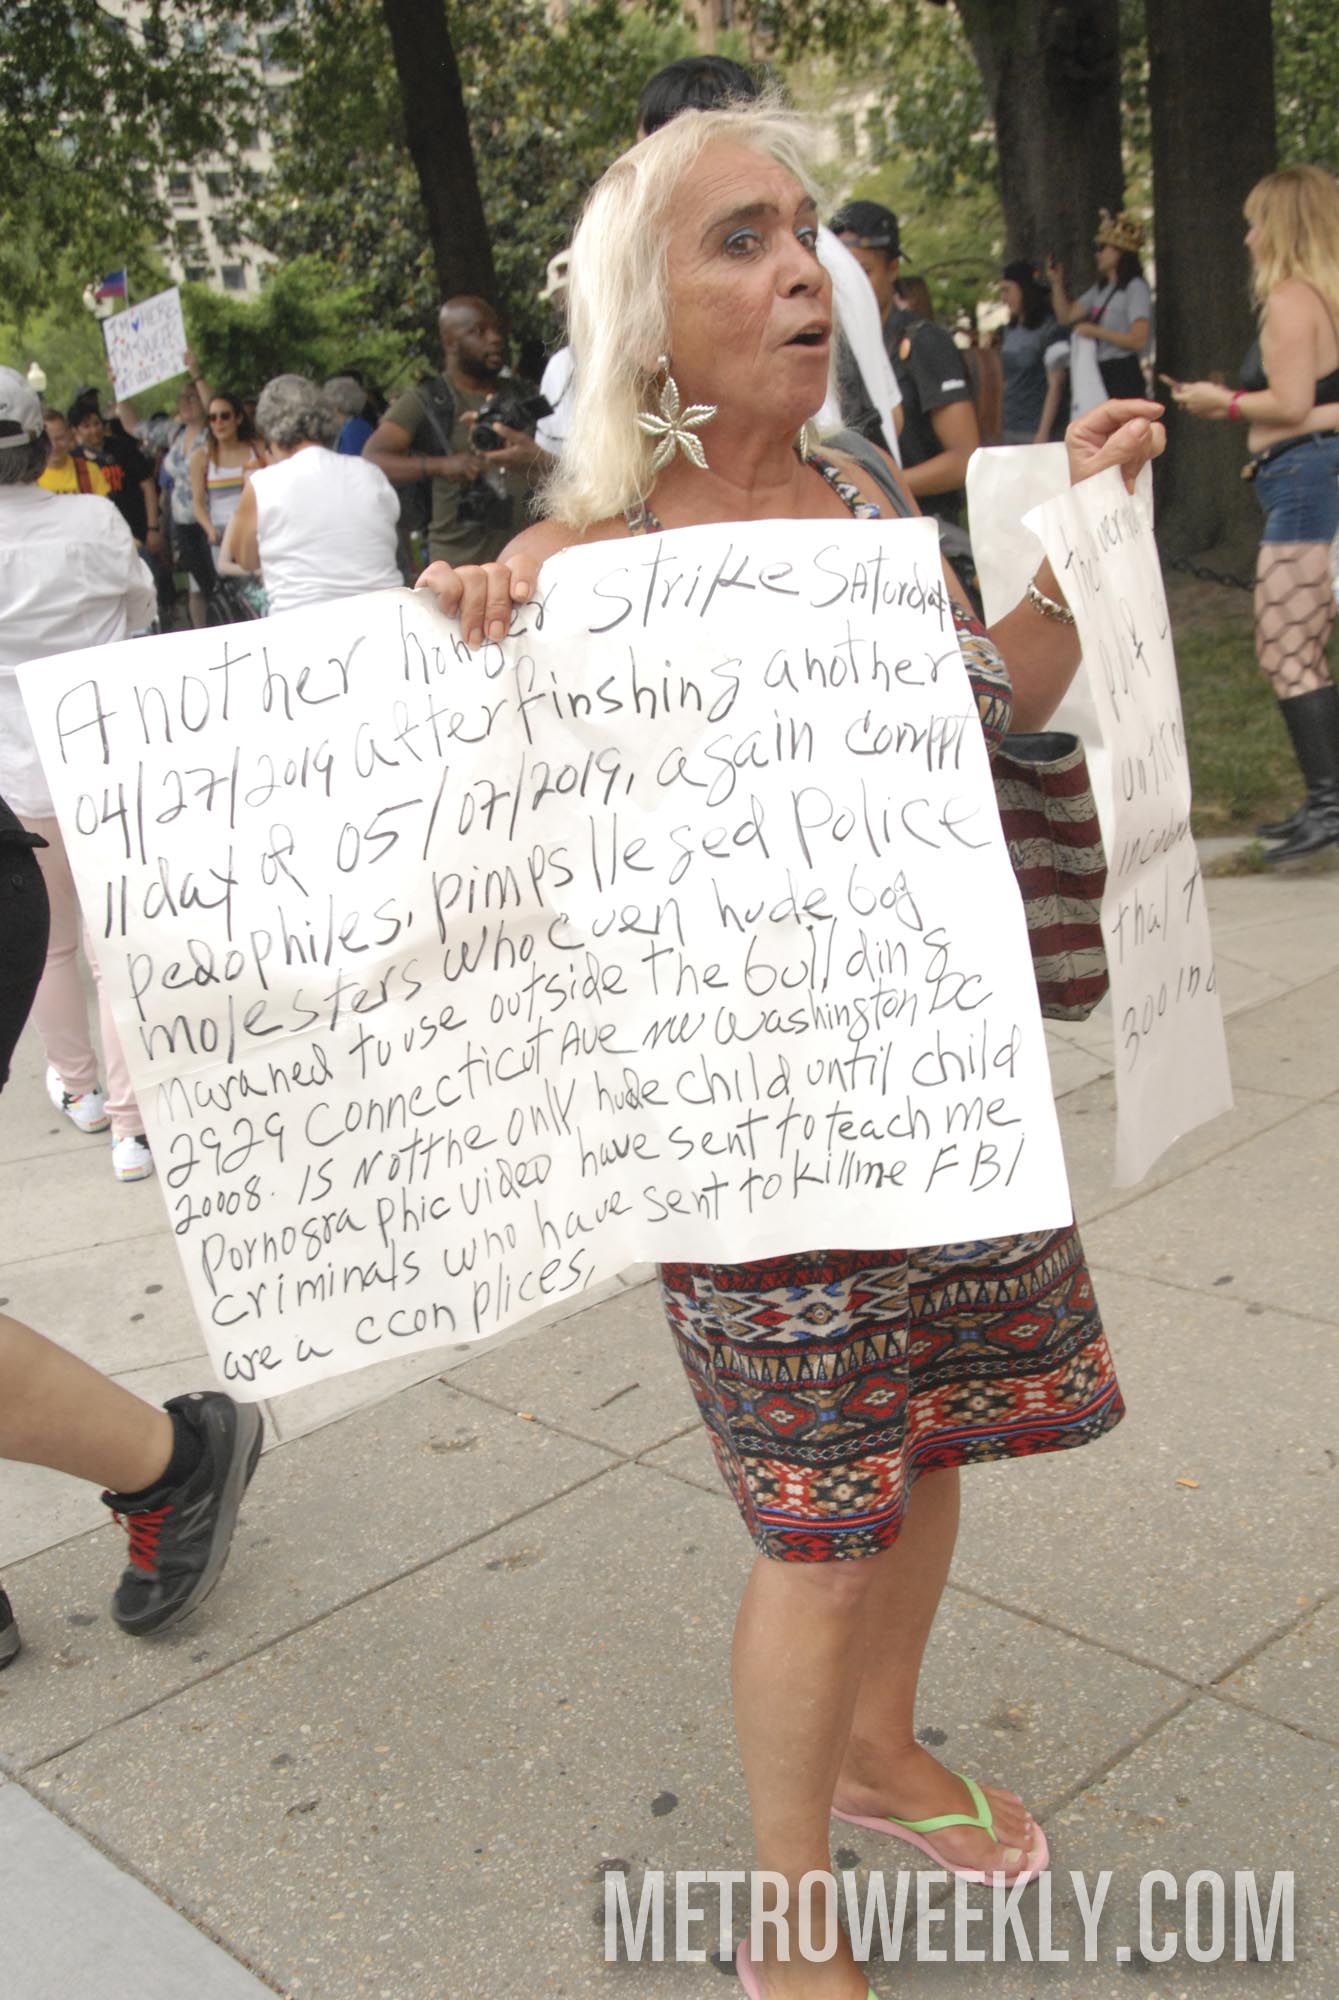 I'M HERE
I'M QUEER
Another hunger strike Saturday
04/27/2019 after finshing another
11 day of 05/07/2019, again corrppt
pedophiles, pimps lleged police
molesters who even hude
maraned to use outside the building
2929 Connecticut Ave NW Washington DC
20008. IS Not the only hude child until child
Pornographic video have sent to teach me
criminals who have sent to kill me FBI
are a ccon plices,
until
that I
300 ind
METROWEEKLY.COM